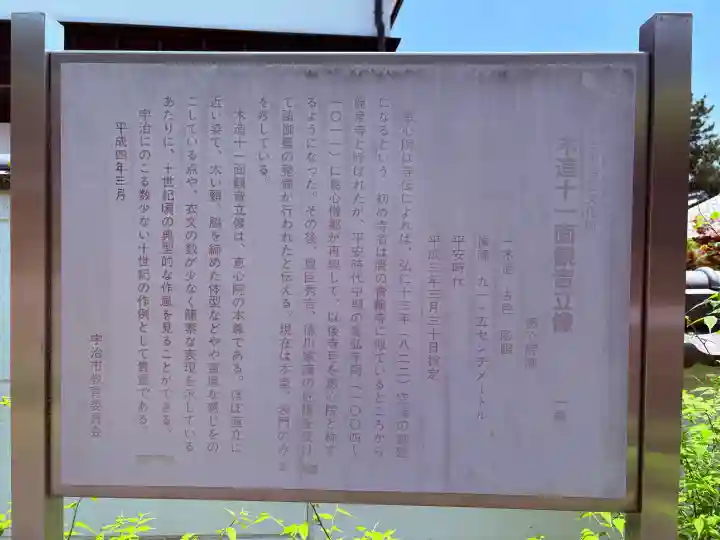 文化財
木造十一面観音立像 一軀
恵心院蔵
一木造 古色 彫眼
像高 九一・五センチメートル
平安時代
平成三年三月三十日指定
恵心院は寺伝によれば、弘仁十三年（八二二）空海の開基
になるという。初め寺名は唐の青龍寺に似ているところから
龍泉寺と呼ばれたが、平安時代中期の寛弘年間（一〇〇四～
一〇一一）に恵心僧都が再興して、以後寺号を恵心院と称す
るようになった。その後、豊臣秀吉、徳川家康の庇護を受け
て諸伽藍の整備が行われたと伝える。現在は本堂、表門のみを
を残している。
木造十一面観音立像は、恵心院の本尊である。ほぼ直立に
近い姿で、太い頸、脇を締めた体型などやや重厚な感じをの
こしている点や、衣文の数が少なく簡素な表現を示している
あたりに、十世紀頃の典型的な作風を見ることができる。
宇治にのこる数少ない十世紀の作例として貴重である。
平成四年三月
宇治市教育委員会